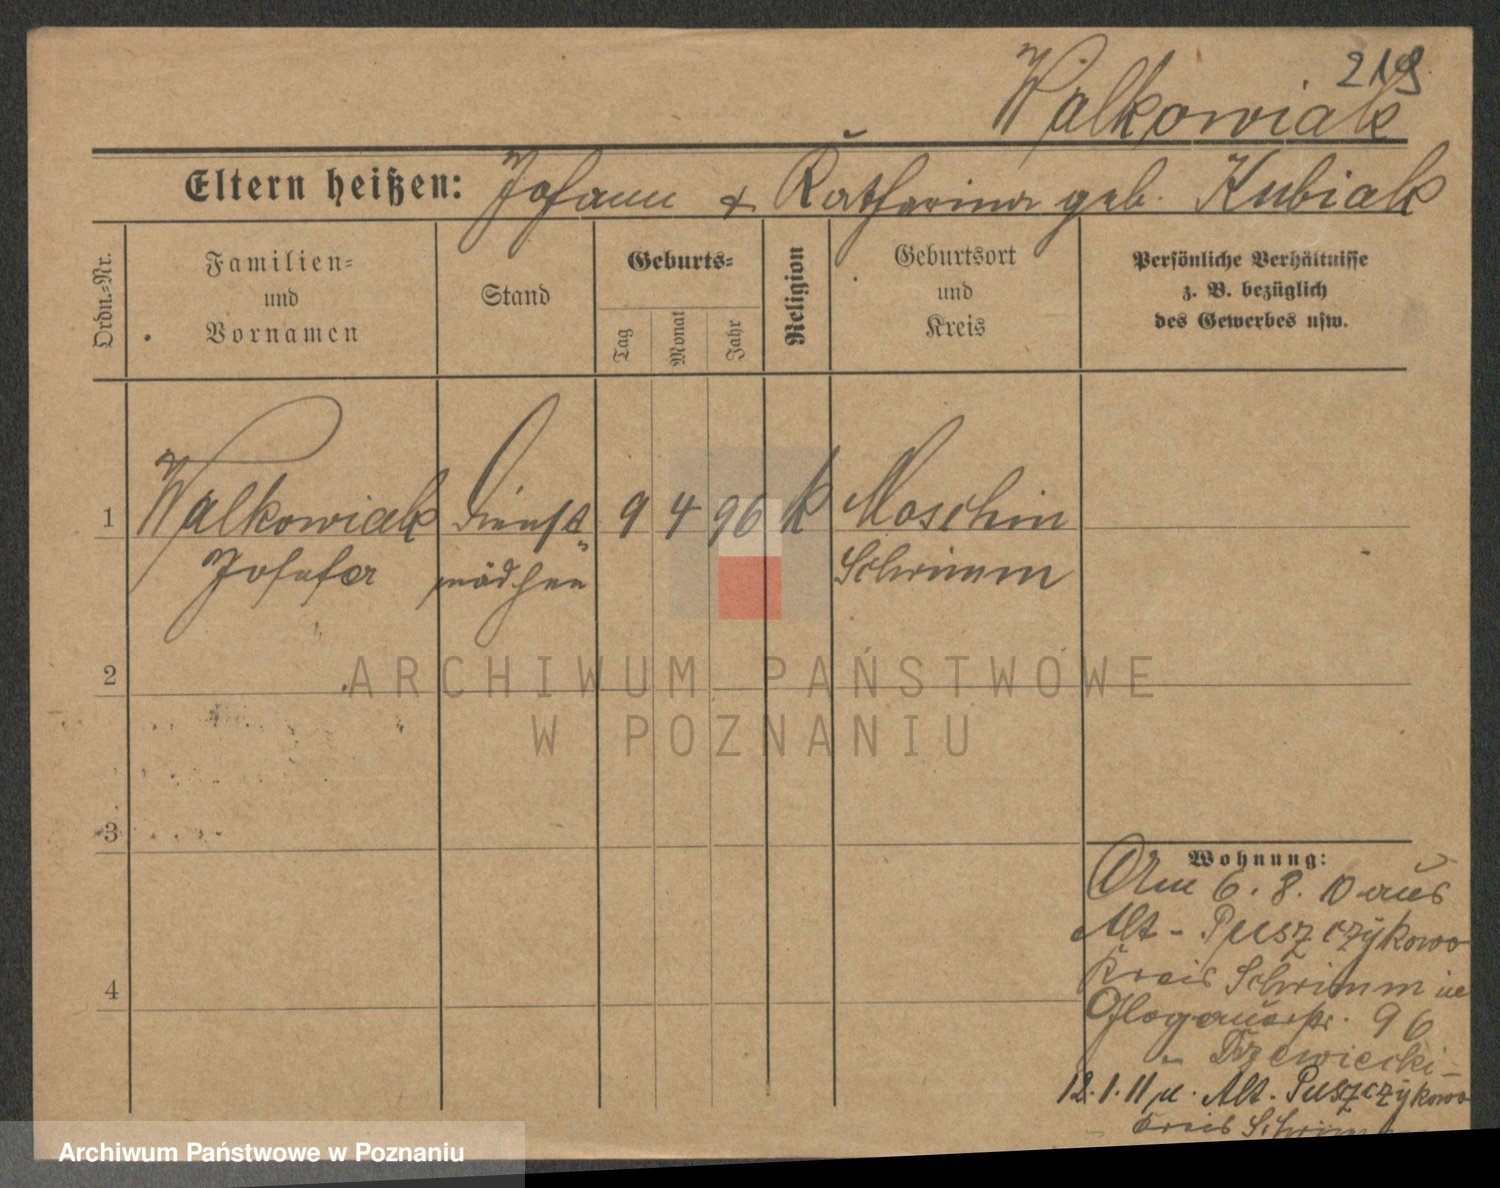 219
Walkowiak
Eltern heißen: Johann & Katharina geb. Kubiak
Ordn.-Nr.
Familien-
und
Vornamen
Stand
Geburts-
Tag
Monat
Jahr
Religion
Geburtsort
und
Kreis
Persönliche Verhältnisse
z. B. bezüglich
des Gewerbes usw.
1 Walkowiak Dienst- 9 4 96 k Moschin
Josefa mädchen Schrimm
2
ARCHIWUM PAŃSTWOWE
W POZNANIU
3
Wohnung:
Am 6. 8. 10 aus
Alt-Puszczykowo
4
Kreis Schrimm in
Glogauerstr. 96
- Trzewiecki -
12.1.11 n. Alt-Puszczykowo
Kreis Schrimm
Archiwum Państwowe w Poznaniu